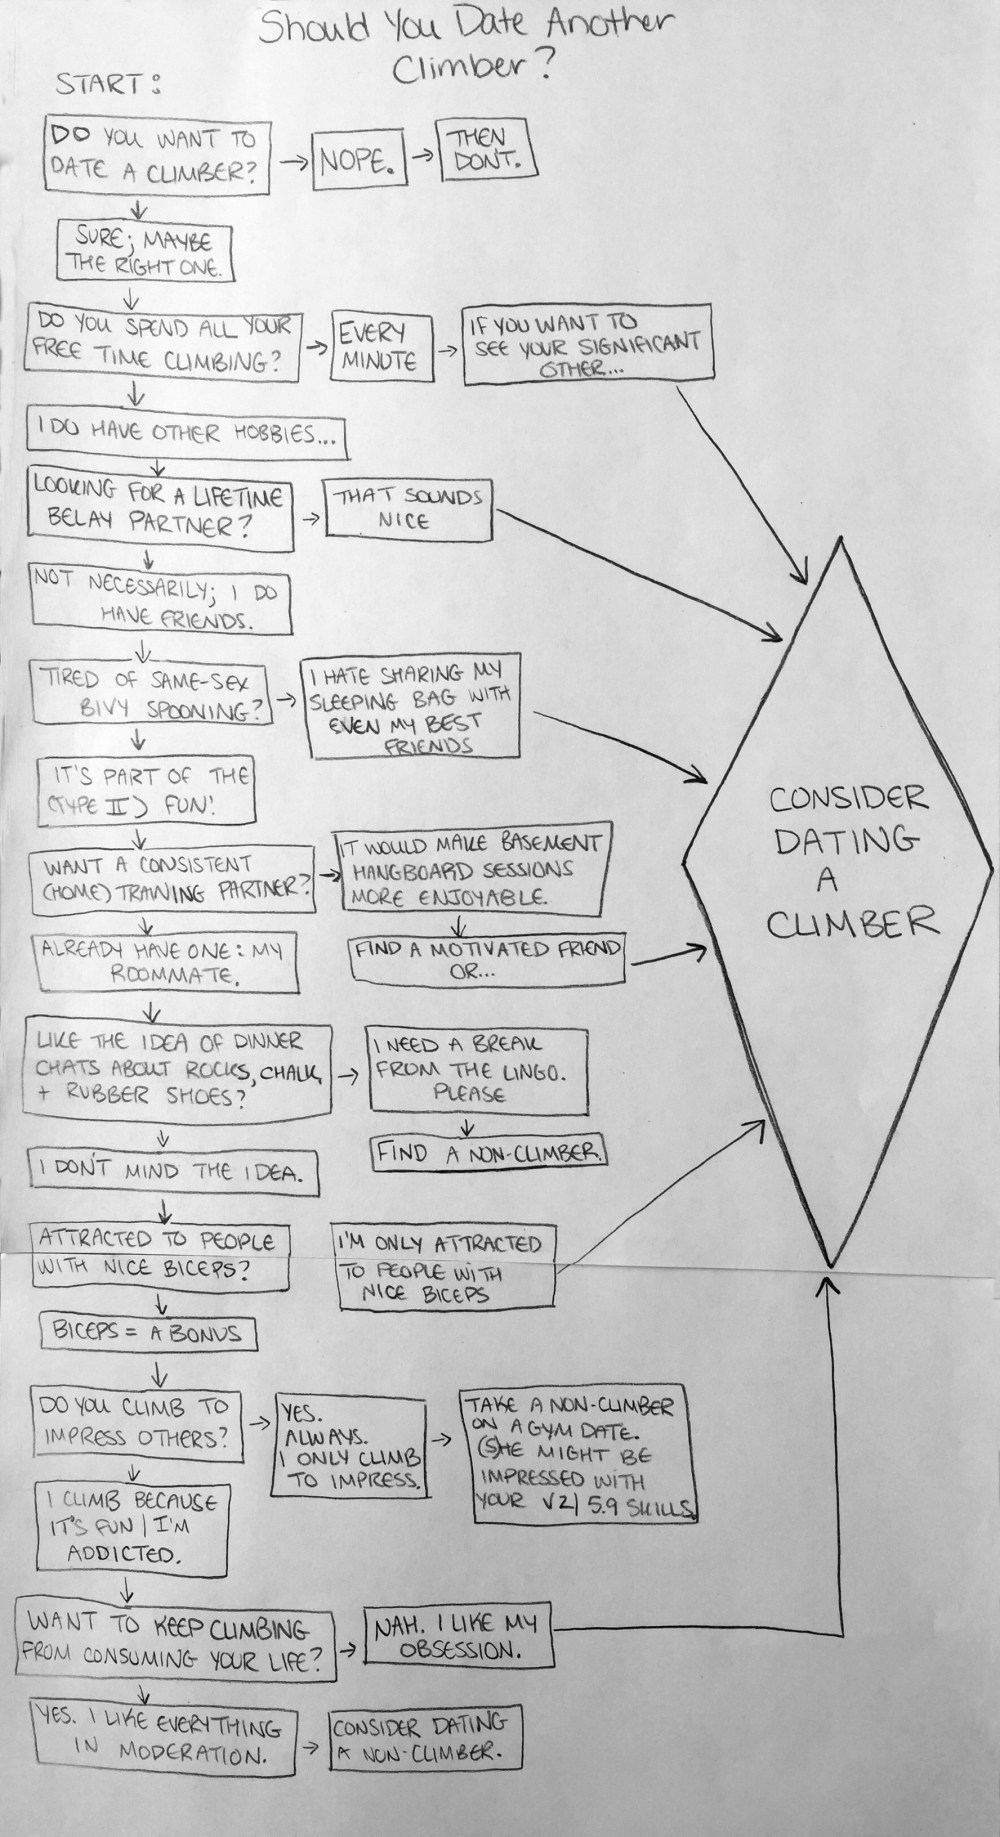 Should You Date Another
Climber?
START:
DO YOU WANT TO
DATE A CLIMBER?
NOPE.
THEN
DON'T.
SURE; MAYBE
THE RIGHT ONE.
DO YOU SPEND ALL YOUR
FREE TIME CLIMBING?
EVERY
MINUTE
IF YOU WANT TO
SEE YOUR SIGNIFICANT
OTHER...
I DO HAVE OTHER HOBBIES...
LOOKING FOR A LIFETIME
BELAY PARTNER?
THAT SOUNDS
NICE
NOT NECESSARILY; I DO
HAVE FRIENDS.
TIRED OF SAME-SEX
BIVY SPOONING?
I HATE SHARING MY
SLEEPING BAG WITH
EVEN MY BEST
FRIENDS
IT'S PART OF THE
(TYPE II) FUN!
WANT A CONSISTENT
(HOME) TRAINING PARTNER?
IT WOULD MAKE BASEMENT
HANGBOARD SESSIONS
MORE ENJOYABLE.
ALREADY HAVE ONE: MY
ROOMMATE.
FIND A MOTIVATED FRIEND
OR...
CONSIDER
DATING
A
CLIMBER
LIKE THE IDEA OF DINNER
CHATS ABOUT ROCKS, CHALK,
+ RUBBER SHOES?
I NEED A BREAK
FROM THE LINGO.
PLEASE
FIND A NON-CLIMBER.
I DON'T MIND THE IDEA.
ATTRACTED TO PEOPLE
WITH NICE BICEPS?
I'M ONLY ATTRACTED
TO PEOPLE WITH
NICE BICEPS
BICEPS = A BONUS
DO YOU CLIMB TO
IMPRESS OTHERS?
YES.
ALWAYS.
I ONLY CLIMB
TO IMPRESS.
TAKE A NON-CLIMBER
ON A GYM DATE.
(S)HE MIGHT BE
IMPRESSED WITH
YOUR V2/5.9 SKILLS.
I CLIMB BECAUSE
IT'S FUN/I'M
ADDICTED.
WANT TO KEEP CLIMBING
FROM CONSUMING YOUR LIFE?
NAH. I LIKE MY
OBSESSION.
YES. I LIKE EVERYTHING
IN MODERATION.
CONSIDER DATING
A NON-CLIMBER.